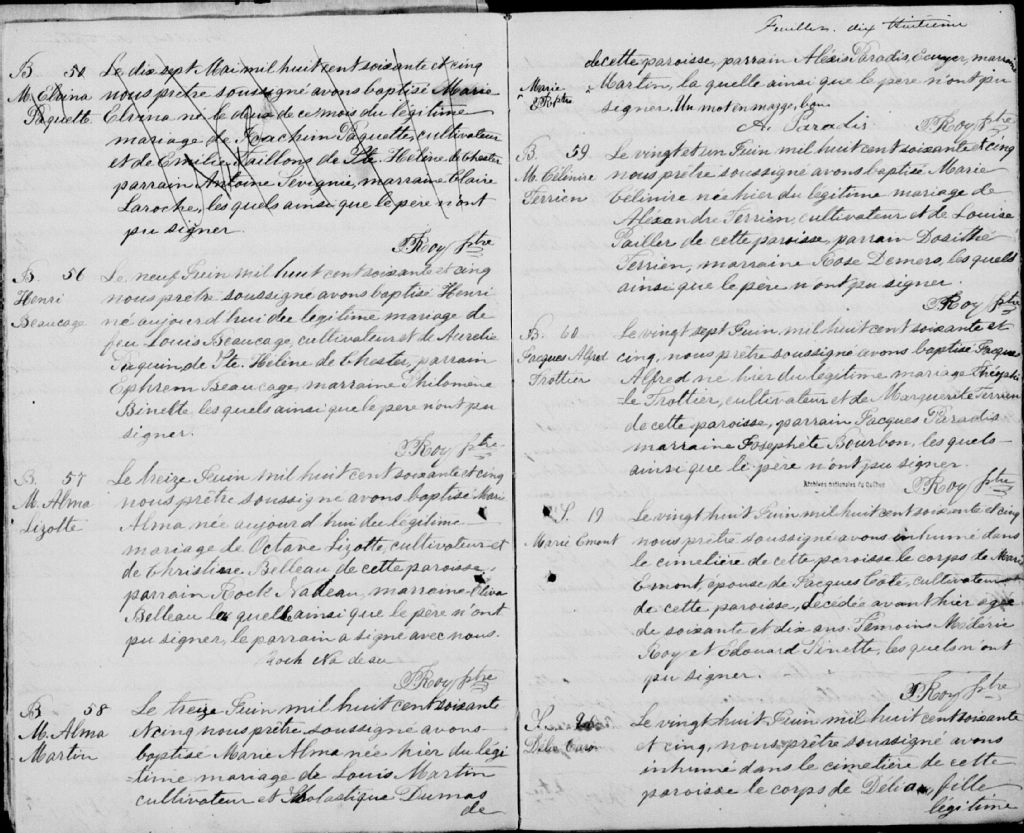 B 50
M. Elvina
Paquette
Le dix sept Mai mil huit cent soixante et cinq
nous prêtre soussigné avons baptisé Marie
Elvina né le deux de ce mois du légitime
mariage de Joachim Paquette, cultivateur
et de Emilie de Ste. Hélène de Chester
parrain Antoine Sevegnie, marraine Claire
Laroche, les quels ainsi que le père n'ont
pu signer.
J Roy ptre
B 56
Henri
Beaucage
Le neuf Juin mil huit cent soixante et cinq
nous prêtre soussigné avons baptisé Henri
né aujourd hui du légitime mariage de
feu Louis Beaucage, cultivateur et de Aurelie
Paquin, de Ste. Hélène de Chester, parrain
Ephrem Beaucage, marraine Philomène
Binette les quels ainsi que le père n'ont pu
signer.
J Roy ptre
B. 57
M. Alma
Lizotte
Le treize Juin mil huit cent soixante et cinq
nous prêtre soussigné avons baptisé Marie
Alma née aujourd'hui du légitime
mariage de Octave Lizotte, cultivateur et
de Christine Belleau de cette paroisse,
parrain Rock Nadeau, marraine Oliva
Belleau la quelle ainsi que le père n'ont
pu signer, le parrain a signé avec nous.
Roch Nadeau
J Roy ptre
B 58
M. Alma
Martin
Le treize Juin mil huit cent soixante
et cinq nous prêtre soussigné avons
baptisé Marie Alma née hier du légi
=time mariage de Louis Martin
cultivateur et Scholastique Dumas
de
Feuillet. dix huitième
de cette paroisse, parrain Aléxis Paradis, Ecuyer, marraine
Marie
Martin, la quelle ainsi que le père n'ont pu
signer. Un mot en marge, bon.
A. Paradis J Roy ptre
B. 59
M. Célinire
Terrien
Le vingt et un Juin mil huit cent soixante et cinq
nous prêtre soussigné avons baptisé Marie
Célinire née hier du légitime mariage de
Alexandre Terrien, cultivateur et de Louise
Pailler de cette paroisse, parrain Dosithé
Terrien, marraine Rose Demers, les quels
ainsi que le père n'ont pu signer.
J Roy ptre
B. 60
Jacques Alfred
Trottier
Le vingt sept Juin mil huit cent soixante et
cinq, nous prêtre soussigné avons baptisé Jacques
Alfred né hier du légitime mariage Théophi
=le Trottier, cultivateur et de Marguerite Terrien
de cette paroisse, parrain Jacques Paradis
marraine Josephete Bourbon, les quels
ainsi que le père n'ont pu signer.
Archives nationales du Québec
J Roy ptre
S. 19
Marie Emont
Le vingt huit Juin mil huit cent soixante et cinq
nous prêtre soussigné avons inhumé dans
le cimetière de cette paroisse le corps de Marie
Emont, épouse de Jacques Coté, cultivateur
de cette paroisse, décédée avant hier agée
de soixante et dix ans. Témoins Méderic
Roy et Edouard Pinette, les quels n'ont
pu signer.
J Roy ptre
S. 20
Délia Caron
Le vingt huit Juin mil huit cent soixante
et cinq, nous prêtre soussigné avons
inhumé dans le cimetière de cette
paroisse le corps de Délia, fille
légitime